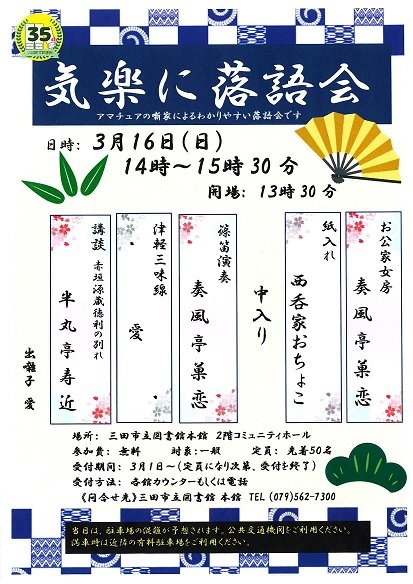 35
気楽に落語会
アマチュアの噺家によるわかりやすい落語会です
日時: 3月16日(日)
14時～15時30分
開場: 13時30分
お公家女房
奏風亭菓恋
紙入れ
西呑家おちょこ
中入り
篠笛演奏
奏風亭菓恋
津軽三味線
愛
講談 赤垣源蔵徳利の別れ
半丸亭寿近
出囃子 愛
場所: 三田市立図書館本館 2階コミュニティホール
参加費: 無料 対象:一般 定員: 先着50名
受付期間: 3月1日～(定員になり次第、受付を終了)
受付方法: 各館カウンターもしくは電話
《問合せ先》三田市立図書館 本館 TEL (079)562-7300
当日は、駐車場の混雑が予想されます。公共交通機関をご利用ください。
満車時は近隣の有料駐車場をご利用ください。